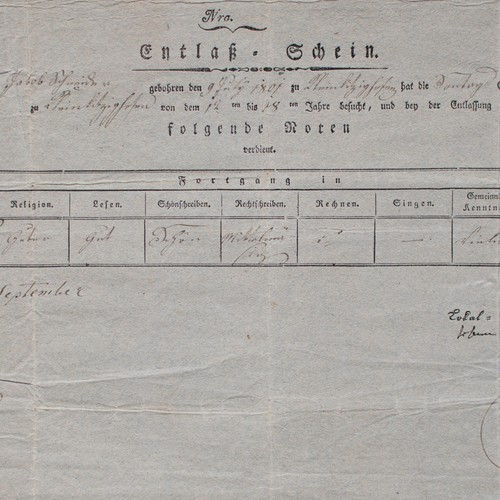 Nro.
Entlaß-Schein.
Jacob Schneider gebohren den 9 July 1801 zu hat die Sontag
zu von dem 12 ten bis 18 ten Jahre besucht, und bey der Entlassung
folgende Noten
verdient.
Fortgang in
Religion. Lesen. Schönschreiben. Rechtschreiben. Rechnen. Singen. Gemeinn
Kenntni
Gut Schön —
September
Lokal=